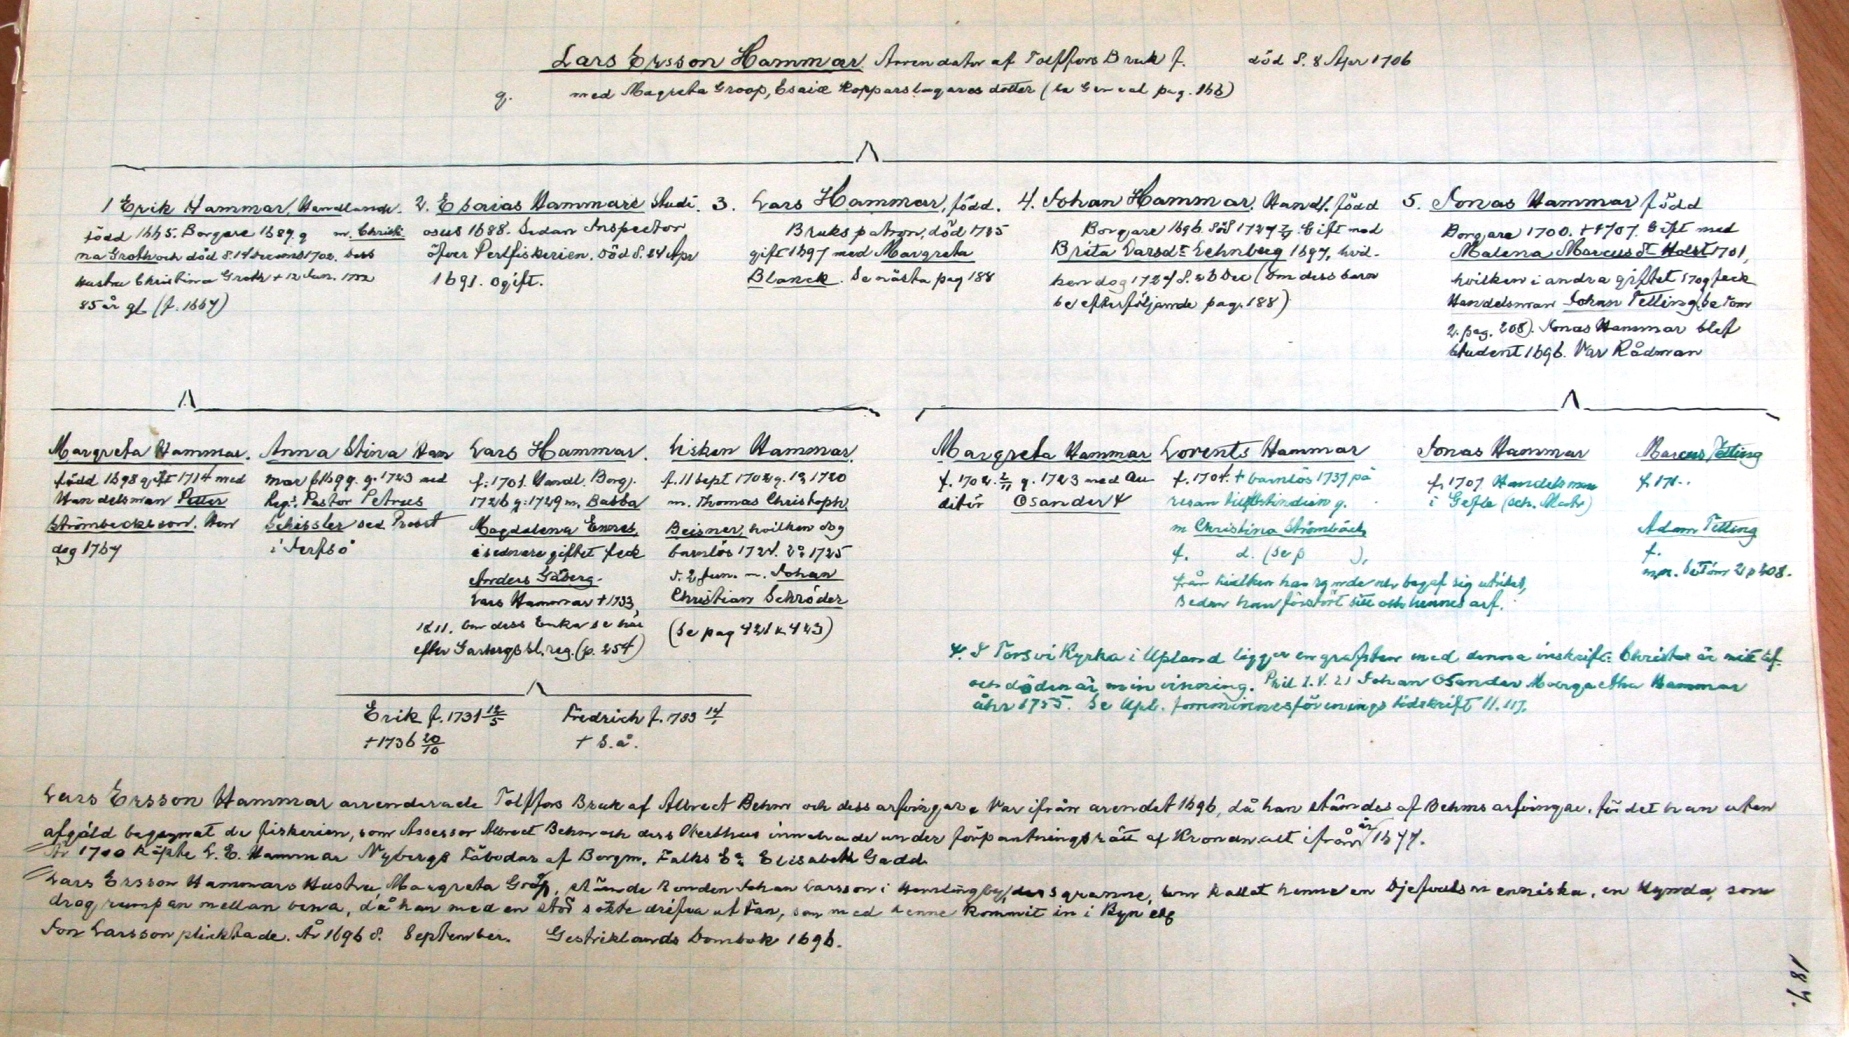 Lars Ersson Hammar. Arrendator af Tolffors Bruk f. död d. 8 Apr 1706
g. med Magreta Groop, Esaiæ Kopparslagares dotter (se Geneal pag. 166)
1 Erik Hammar, Handlande.
född 1665. Borgare 1689 g m. Christi
na Groth och död d. 14 1702. dess
Hustru Christina Groth + 12 Jan. 1752
85 år gl (f. 1667)
2. Esaias Hammare Studi.
osus 1688. Sedan Inspector
öfver Perlfiskerien. Död d. 24 Apr
1691. ogift.
3. Lars Hammar, född.
Brukspatron, död 1725
gift 1697 med Margreta
Blanck. Se nästa pag 188
4. Johan Hammar. Handl. född
Borgare 1696. Död 1727 Gift med
Brita Larsdr Lehnberg 1697, hvil-
ken dog 1727 d. 26 Dec (om dess barn
se efterföljande pag. 188)
5. Jonas Hammar född
Borgare 1700. + 1707. Gift med
Malena Marcus dr Holst 1701,
hvilken i andra giftet 1709 feck
Handelsman Johan Tetting (se Tom
2. pag. 208). Jonas Hammar blef
Student 1696. Var Rådman
Margreta Hammar.
född 1698 gift 1714 med
Handelsman Petter
Strömbeckesson. Hon
dog 1767
Anna Stina Ham
mar f. 1699. g. 1723 med
Regs. Pastor Petrus
Schissler sed. Probst
i Jerfsö
Lars Hammar.
f. 1701. Handl. Borg.
1726 g. 1729 m. Babba
Magdalena Enres,
i sednare giftet feck
Anders Gåberg.
Lars Hammar + 1733,
18/11. Om dess Enka se här
efter Garbergs bl. reg. (p. 254)
Lisken Hammar.
f. 11 Sept 1702 g. 1º 1720
m. Thomas Christoph
Beisner, hvilken dog
barnlös 1724. 2º 1725
d. 2 Jun. m. Johan
Christian Schröder
(Se pag 421 & 423)
Margreta Hammar
f. 1702. g. 1723 med Au
ditör Osander 4
Lorents Hammar
f. 1704. + barnlös 1737 på
resan till Ostindien g.
m Christina Strömbäck
f. d. (se p ),
från hvilken han rymde och begaf sig utrikes,
Sedan han förstört sitt och hennes arf.
Jonas Hammar
f. 1707 Handelsman
i Gefle (och. Mantr)
Marcus Tetting
f. 171..
Adam Tetting
f.
mm. Se Tom 2 p 208.
4. I Torsvi Kyrka i Upland ligger en grafsten med denna inskrift: Christus är mitt lif
och döden är min vinning. Phil 1. V. 21 Johan Osander Margaetha Hammar
åhr 1755. Se Upl. fornminnesförenings tidskrift II. 117.
Erik f. 1731 12/5
+ 1736 20/10
Fredrich f. 1733 14/1
+ s. å.
Lars Ersson Hammar arrenderade Tolffors Bruk af Albrect Behm och dess arfvingar. Var ifrån arendet 1696, då han stämdes af Behms arfvingar, för det han utan
afgäld begagnat de fiskerien, som Assessor Albrect Behm och dess Sterbhus innehade under förpantningsrätt af Kronan alt ifrån år 1677.
År 1700 köpte L. E. Hammar Nybergs Fäbodar af Borgm. Falks Ea Elisabeth Gadd.
Lars Ersson Hammars Hustru Margreta Groop, stämde Bonden Johan Larsson i Hemlingby, dess granne, som kallat henne en Djefvuls menniska, en Hynda, som
drog rumpan mellan bena, då han med en stör sökte drifva ut Fän, som med henne kommit in i Byn etc
Jon Larsson plicktade. År 1696 d. September. Gestriklands Dombok 1696.
187.